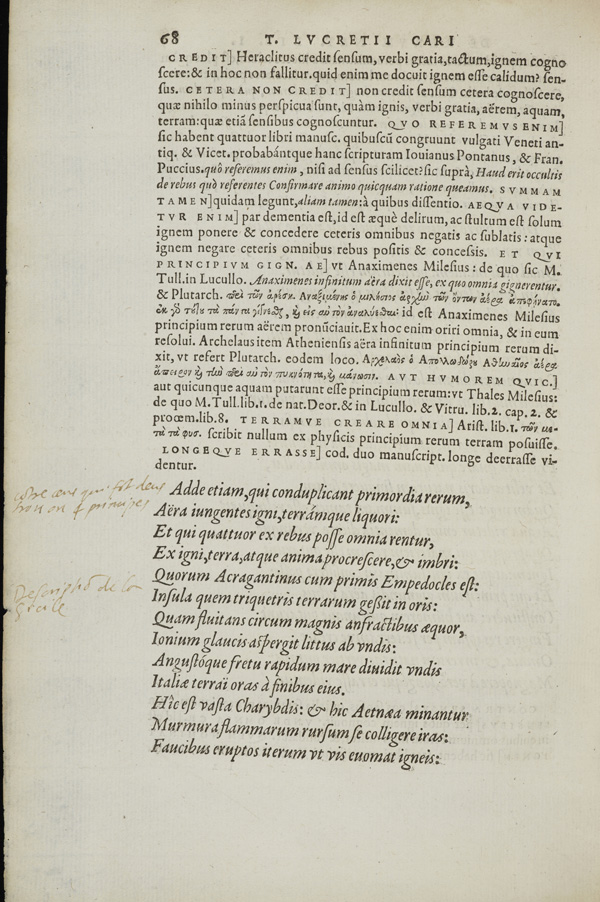 68 T. LVCRETII CARI
CREDIT] Heraclitus credit sensum, verbi gratia, tactum, ignem cogno
scere: & in hoc non fallitur. quid enim me docuit ignem esse calidum? sen-
sus. CETERA NON CREDIT] non credit sensum cetera cognoscere,
quæ nihilo minus perspicua sunt, quàm ignis, verbi gratia, aërem, aquam,
terram: quæ etiã sensibus cognoscuntur. QVO REFEREMVS ENIM]
sic habent quattuor libri manusc. quibuscũ congruunt vulgati Veneti an-
tiq. & Vicet. probabántque hanc scripturam Iouianus Pontanus, & Fran.
Puccius. quò referemus enim, nisi ad sensus scilicet? sic suprà, Haud erit occultis
de rebus quò referentes Confirmare animo quicquam ratione queamus. SVMMAM
TAMEN] quidam legunt, aliam tamen: à quibus dissentio. AEQVA VIDE-
TVR ENIM] par dementia est, id est æquè delirum, ac stultum est solum
ignem ponere & concedere ceteris omnibus negatis ac sublatis: atque
ignem negare ceteris omnibus rebus positis & concessis. ET QVI
PRINCIPIVM GIGN. AE] vt Anaximenes Milesius: de quo sic M.
Tull. in Lucullo. Anaximenes infinitum aëra dixit esse, ex quo omnia gignerentur.
& Plutarch. Ἀναξιμένης ὁ μιλήσιος ἀρχὴν τῶν ὄντων ἀέρα ἀπεφήνατο.
id est Anaximenes Milesius
principium rerum aërem pronũciauit. Ex hoc enim oriri omnia, & in eum
resolui. Archelaus item Atheniensis aëra infinitum principium rerum di-
xit, vt refert Plutarch. eodem loco. Ἀρχέλαος ὁ Ἀπολλοδώρου Ἀθηναῖος ἀέρα
AVT HVMOREM QVIC.]
aut quicunque aquam putarunt esse principium rerum: vt Thales Milesius:
de quo M. Tull. lib. 1. de nat. Deor. & in Lucullo. & Vitru. lib. 2. cap. 2. &
procem. lib. 8. TERRAMVE CREARE OMNIA] Arist. lib. 1. τῶν με-
τὰ τὰ φυσ. scribit nullum ex physicis principium rerum terram posuisse.
LONGEQVE ERRASSE] cod. duo manuscript. longe deerrasse vi-
dentur.
Adde etiam, qui conduplicant primordia rerum,
Aëra iungentes igni, terrámque liquori:
Et qui quattuor ex rebus posse omnia rentur,
Ex igni, terra, atque anima procrescere, & imbri:
Descriptiõ de la
Sicile
Quorum Acragantinus cum primis Empedocles est:
Insula quem triquetris terrarum gessit in oris:
Quam fluitans circum magnis anfractibus æquor,
Ionium glaucis aspergit littus ab vndis:
Angustóque fretu rapidum mare diuidit vndis
Italiæ terraï oras à finibus eius.
Hîc est vasta Charybdis: & hic Aetnæa minantur
Murmura flammarum rursum se colligere iras:
Faucibus eruptos iterum vt vis euomat igneis: